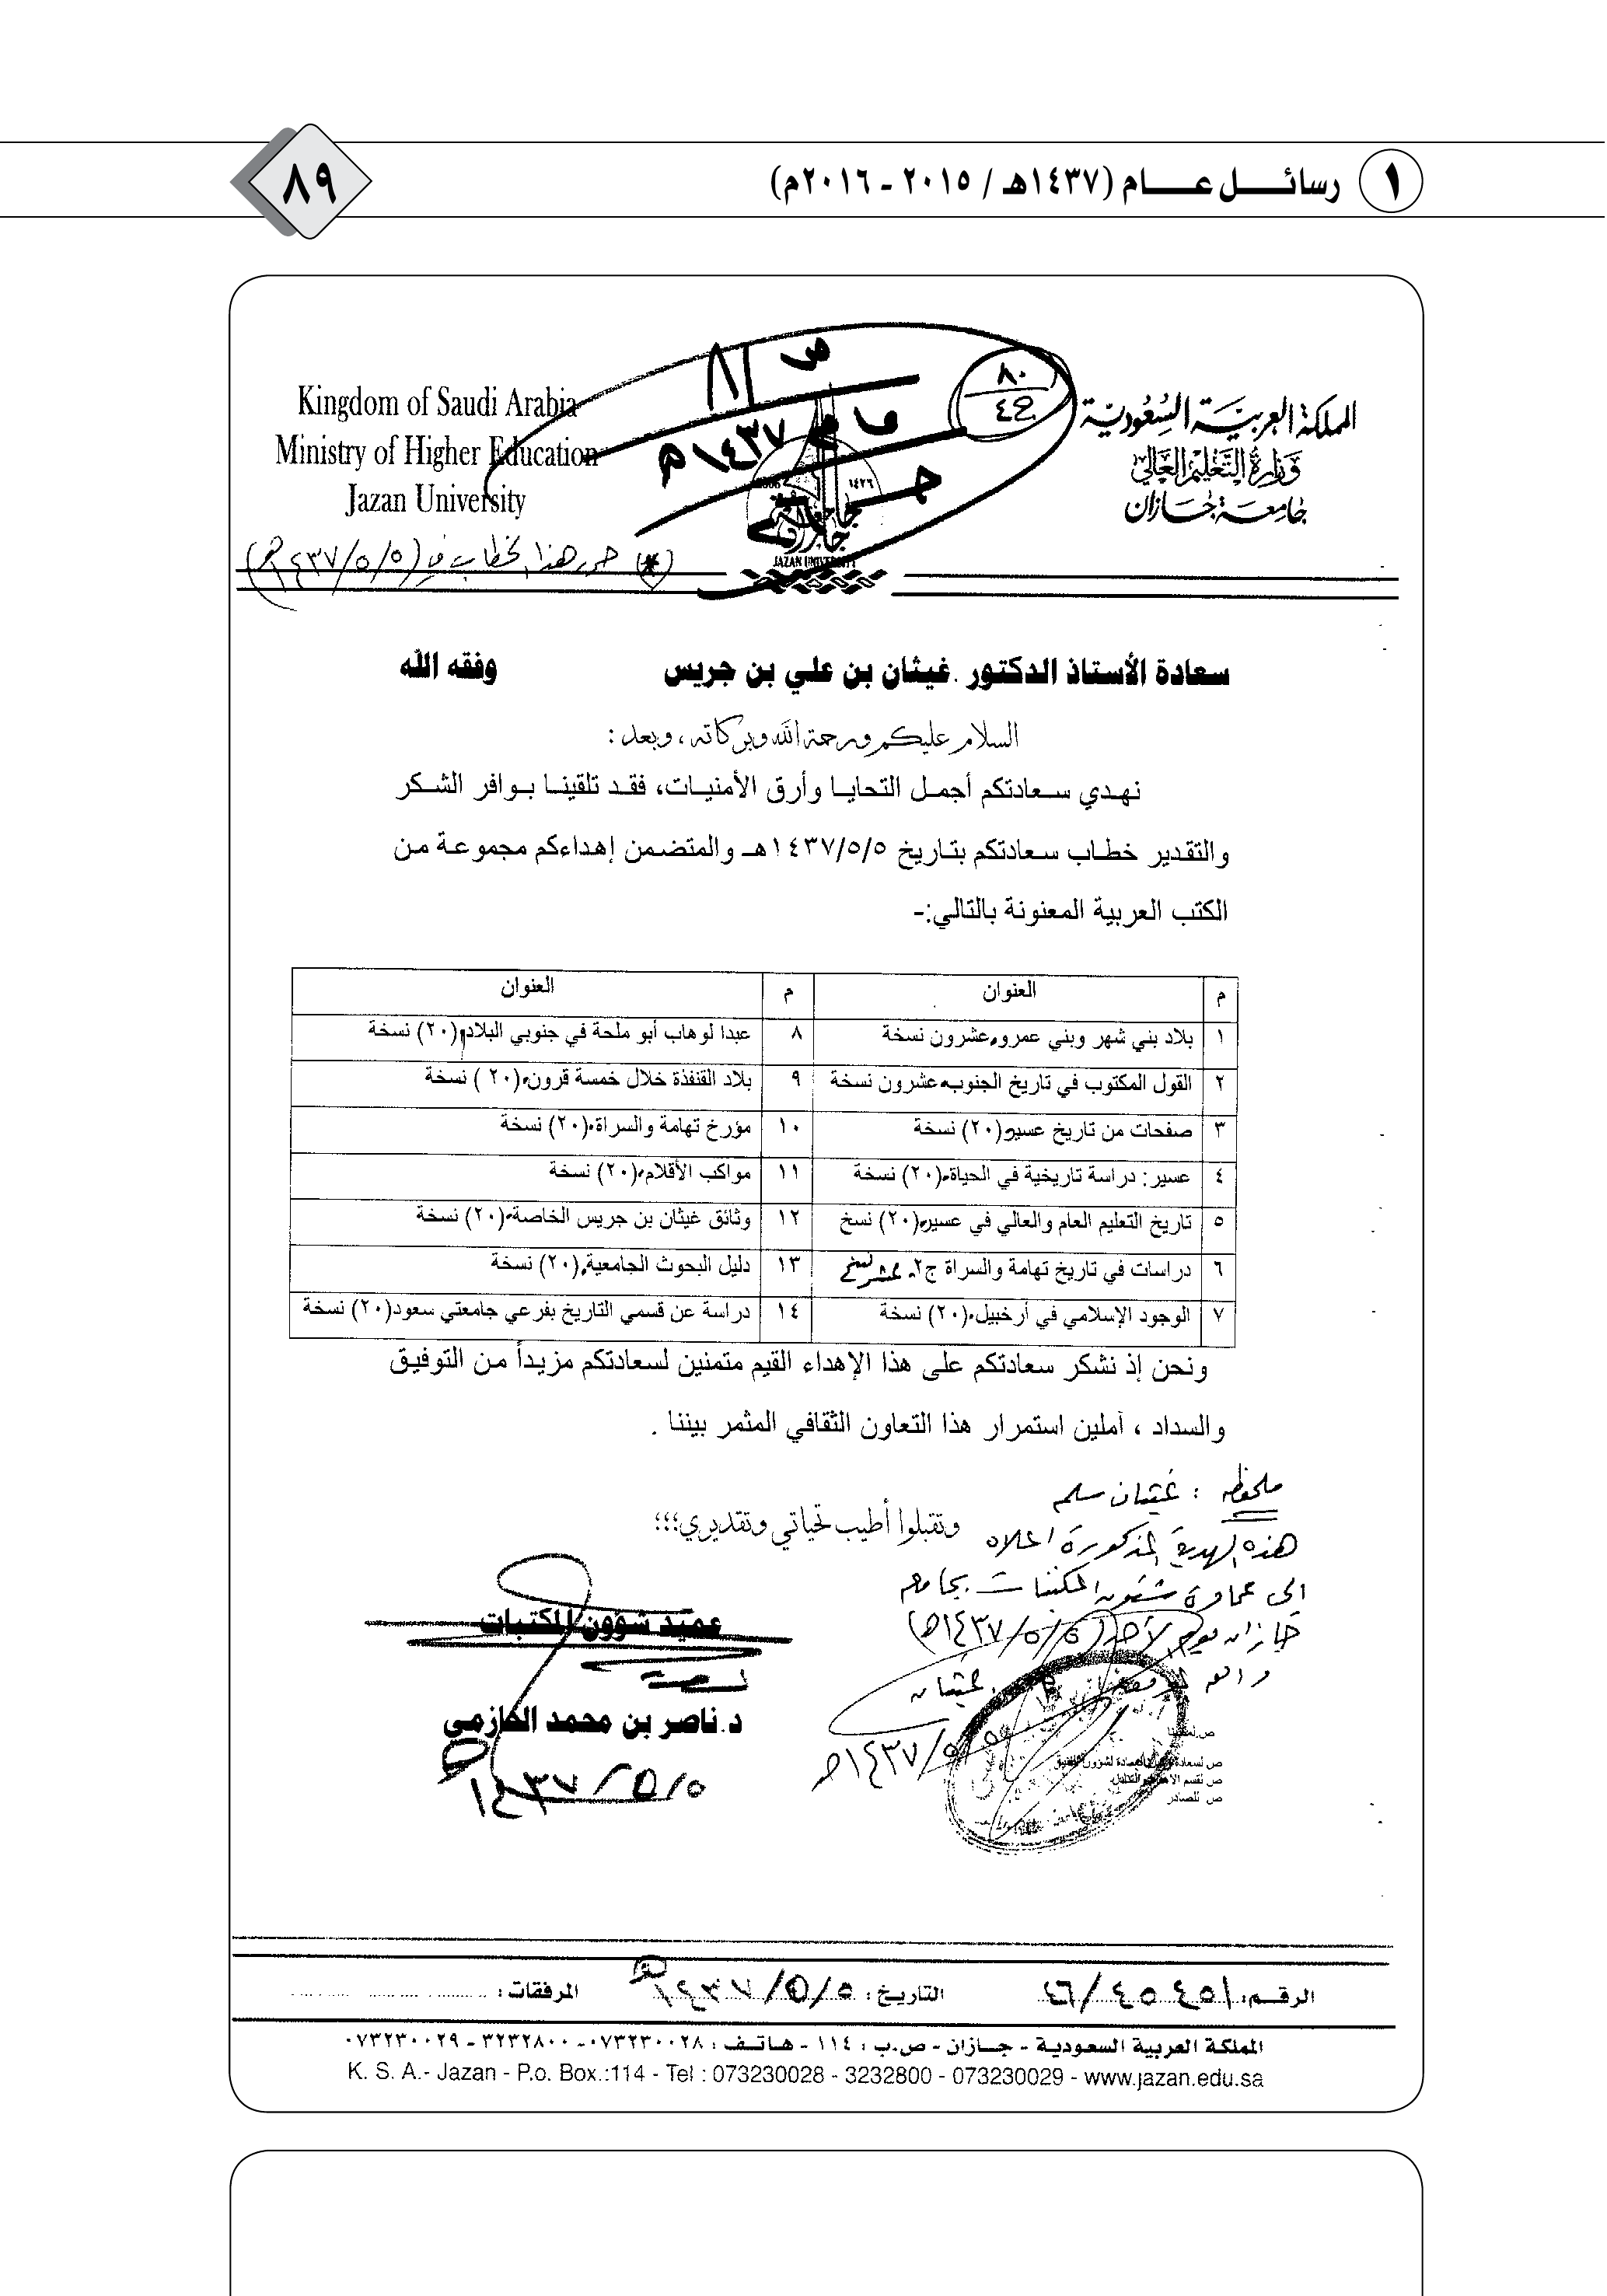 ١ رسائــل عــام (١٤٣٧هـ / ٢٠١٥ - ٢٠١٦م)
٨٩
المملكة العربية السعودية
وزارة التعليم العالي
جامعة جازان
Kingdom of Saudi Arabia
Ministry of Higher Education
Jazan University
٨٠
ص ٨١
عام ١٤٣٧هـ
١٤٢٦
جامعة جازان
JAZAN UNIVERSITY
حرر هذا الخطاب في (١٤٣٧/٥/٥هـ)
سعادة الأستاذ الدكتور .غيثان بن علي بن جريس وفقه الله
السلام عليكم ورحمة الله وبركاته ، وبعد :
نهدي سعادتكم أجمل التحايا وأرق الأمنيات، فقد تلقينا بوافر الشكر
والتقدير خطاب سعادتكم بتاريخ ١٤٣٧/٥/٥هـ والمتضمن إهداءكم مجموعة من
الكتب العربية المعنونة بالتالي:-
م العنوان م العنوان
١ بلاد بني شهر وبني عمرو،عشرون نسخة ٨ عبدا لوهاب أبو ملحة في جنوبي البلاد،(٢٠) نسخة
٢ القول المكتوب في تاريخ الجنوب،عشرون نسخة ٩ بلاد القنفذة خلال خمسة قرون،(٢٠ ) نسخة
٣ صفحات من تاريخ عسير،(٢٠) نسخة ١٠ مؤرخ تهامة والسراة،(٢٠) نسخة
٤ عسير: دراسة تاريخية في الحياة،(٢٠) نسخة ١١ مواكب الأقلام،(٢٠) نسخة
٥ تاريخ التعليم العام والعالي في عسير،(٢٠) نسخ ١٢ وثائق غيثان بن جريس الخاصة،(٢٠) نسخة
٦ دراسات في تاريخ تهامة والسراة ج٢، ١٣ دليل البحوث الجامعية،(٢٠) نسخة
٧ الوجود الإسلامي في أرخبيل،(٢٠) نسخة ١٤ دراسة عن قسمي التاريخ بفرعي جامعتي سعود(٢٠) نسخة
ونحن إذ نشكر سعادتكم على هذا الإهداء القيم متمنين لسعادتكم مزيداً من التوفيق
والسداد ، آملين استمرار هذا التعاون الثقافي المثمر بيننا .
وتقبلوا أطيب تحياتي وتقديري؛؛؛
ملحوظه : غيثان سلم
هذه الهدية المذكورة اعلاه
الى عمادة شئون المكتبات بجامعة
جازان يوم الأحد (١٤٣٧/٥/٥هـ)
والله الموفق غيثان
١٤٣٧/٥/٥هـ
عميد شؤون المكتبات
د.ناصر بن محمد الحازمي
١٤٣٧/٥/٥هـ
ص للصادر
الرقـم: التاريخ : ١٤٣٧/٥/٥هـ المرفقات :
المملكة العربية السعودية - جــازان - ص.ب : ١١٤ - هـاتــف : ٠٧٣٢٣٠٠٢٨ - ٣٢٣٢٨٠٠ - ٠٧٣٢٣٠٠٢٩
K. S. A.- Jazan - P.o. Box.:114 - Tel : 073230028 - 3232800 - 073230029 - www.jazan.edu.sa